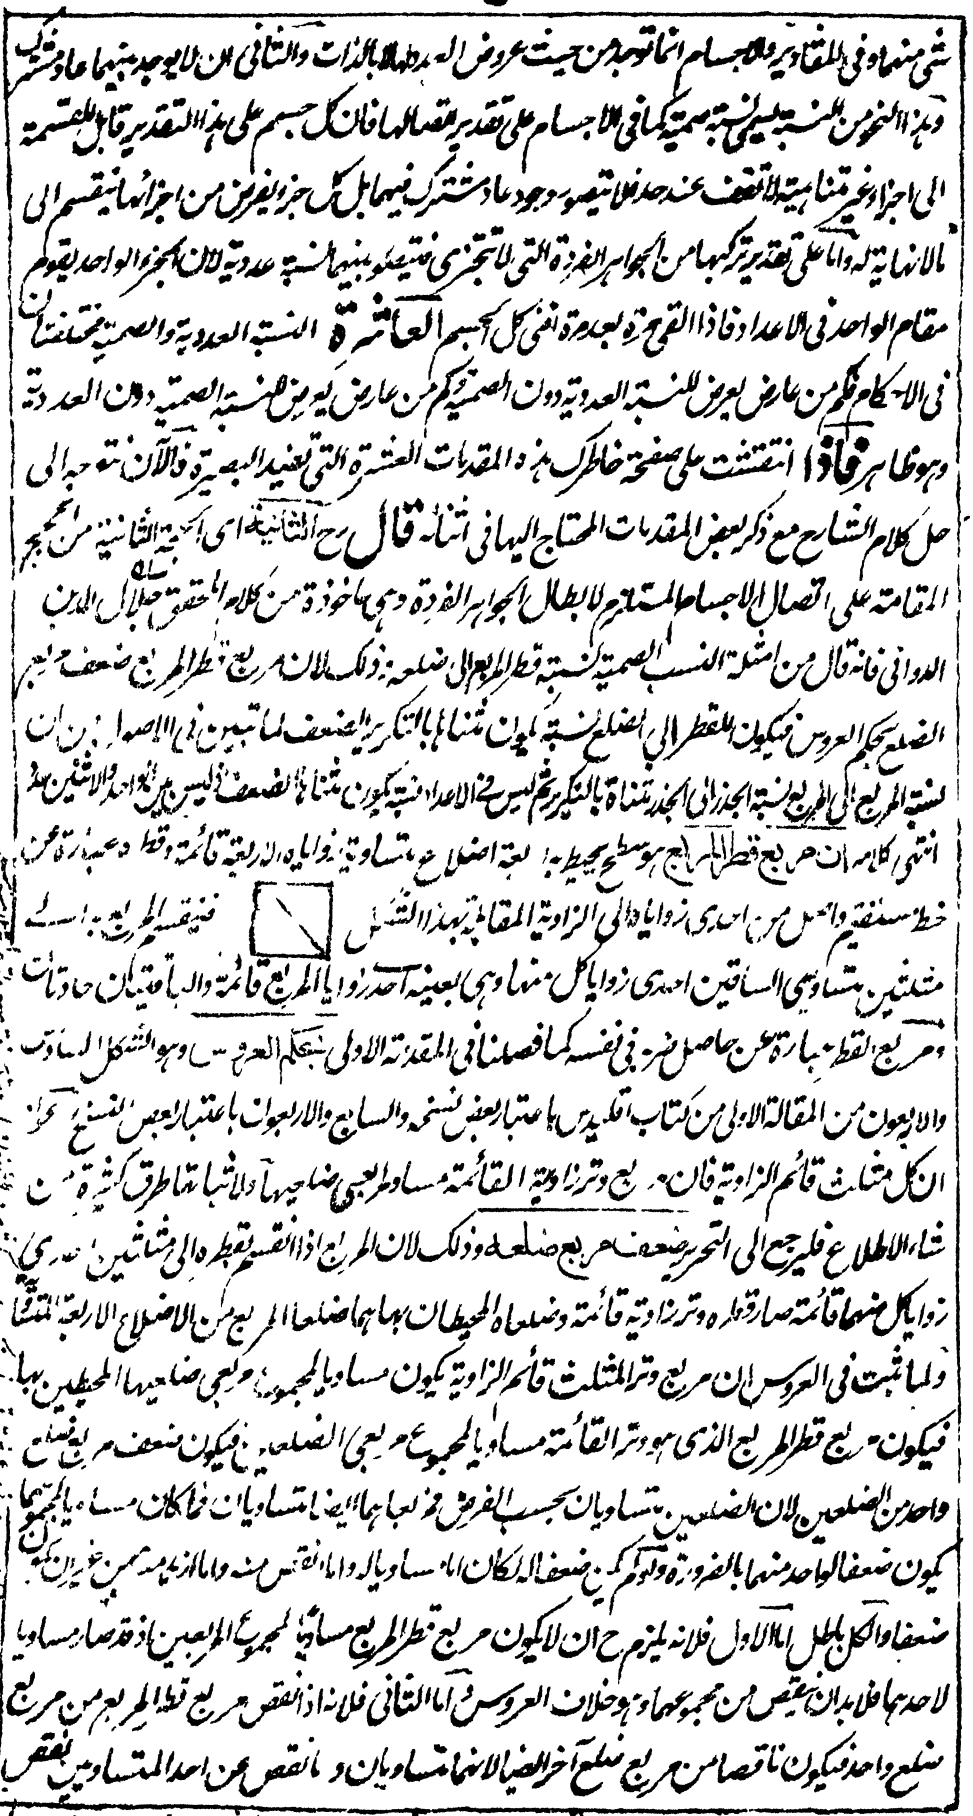 شئ منهما و فى المقادير والاجسام انما توجد من حيث عروض العدد لها لا بالذات والثانى ان لا يوجد بينهما عاد مشترك
وهذا النحو من النسبة يسمى نسبة صمية كما فى الاجسام على تقدير اتصالها فان كل جسم على هذا التقدير قابل للقسمة
الى اجزاء غير متناهية لا تقف عند حد فلا يتصور وجود عاد مشترك فيهما بل كل جزء يفرض من اجزائها ينقسم الى
ما لا نهاية له واما على تقدير تركبها من الجواهر الفردة التى لا تتجزى فيتصور بينهما نسبة عددية لان الجزء الواحد يقوم
مقام الواحد فى الاعداد فاذا القى جزء بعد مرة افنى كل الجسم العاشرة النسبة العددية والصمية مختلفتان
فى الاحكام فكم من عارض يعرض للنسبة العددية دون الصمية وكم من عارض يعرض للنسبة الصمية دون العددية
وهو ظاهر فاذا انتقشت على صفحة خاطرك هذه المقدمات العشرة التى تفيد البصيرة فالآن نتوجه الى
حل كلام الشارح مع ذكر بعض المقدمات المحتاج اليها فى اثنائه قال رح الثانية اى الحجة الثانية من الحجج
المقامة على اتصال الاجسام المستلزم لابطال الجواهر الفردة وهى ماخوذة من كلام المحقق جلال الدين
الدوانى فانه قال من امثلة النسب الصمية نسبة قطر المربع الى ضلعه وذلك لان مربع قطر المربع ضعف مربع
الضلع بحكم العروس فيكون للقطر الى الضلع نسبة يكون مثناها بالتكرير الضعف لما تبين فى الاصول من ان
نسبة المربع الى المربع نسبة الجذر الى الجذر مثناة بالتكرير ثم ليس فى الاعداد نسبة يكون مثناها الضعف اذ ليس بين الواحد والاثنين عدد
انتهى كلامه ان مربع قطر المربع هو سطح يحيط به اربعة اضلاع متساوية زواياه الاربعة قائمة وقطره عبارة عن
خط مستقيم واصل من احدى زواياه الى الزاوية المقابلة بهذا الشكل فينقسم المربع به الى
مثلثين متساوى الساقين احدى زوايا كل منها وهى بعينه احد زوايا المربع قائمة والباقيتان حادتان
ومربع القطر عبارة عن حاصل ضربه فى نفسه كما فصلنا فى المقدمة الاولى بحكم العروس وهو الشكل السادس
والاربعون من المقالة الاولى من كتاب اقليدس باعتبار بعض نسخه والسابع والاربعون باعتبار بعض النسخ
ان كل مثلث قائم الزاوية فان مربع وتر زاويته القائمة مساو لمربعى ضلعيها ولاثباتها طرق كثيرة من
شاء الاطلاع فليرجع الى التحرير ضعف مربع ضلعه وذلك لان المربع اذا انقسم بقطره الى مثلثين احدى
زوايا كل منهما قائمة صار قطره وتر زاوية قائمة وضلعاه المحيطان بها هما ضلعا المربع من الاضلاع الاربعة المتساوية
ولما ثبت فى العروس ان مربع وتر المثلث قائم الزاوية يكون مساويا لمجموع مربعى ضلعيها المحيطين بها
فيكون مربع قطر المربع الذى هو وتر القائمة مساويا لمجموع مربعى الضلعين فيكون ضعف مربع ضلع
واحد من الضلعين لان الضلعين متساويان بحسب الفرض فمربعاهما ايضا متساويان فما كان مساويا لمجموعهما
يكون ضعفا لواحد منهما بالضرورة ولو لم يكن ضعفا له لكان اما مساويا له واما انقص منه واما ازيد منه من غير ان يكون
ضعفا والكل باطل اما الاول فلانه يلزم ح ان لا يكون مربع قطر المربع مساويا لمجموع المربعين اذ قد صار مساويا
لاحدهما فلا بد ان ينقص من مجموعهما وهو خلاف العروس واما الثانى فلانه اذا نقص مربع قطر المربع من مربع
ضلع واحد فيكون ناقصا من مربع ضلع آخر ايضا لانهما متساويان وما نقص عن احد المتساويين نقص